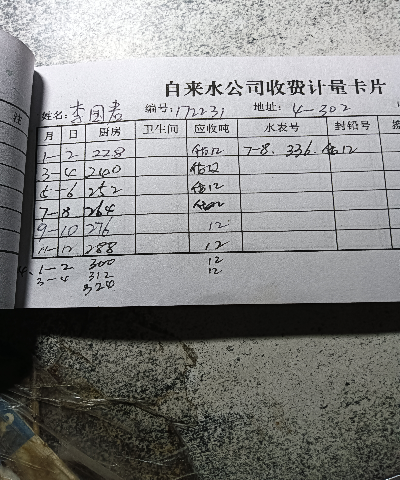 自来水公司收费计量卡片
姓名: 李国君 编号: 172231 地址: 4-302
月 日 厨房 卫生间 应收吨 水表号 封铅号
1-2 228 估12 7-8. 336. 估12
3-4 240 估12
5-6 252 估12
7-8 264 估12
9-10 276 12
11-12 288 12
1-2 300 12
3-4 312 12
324